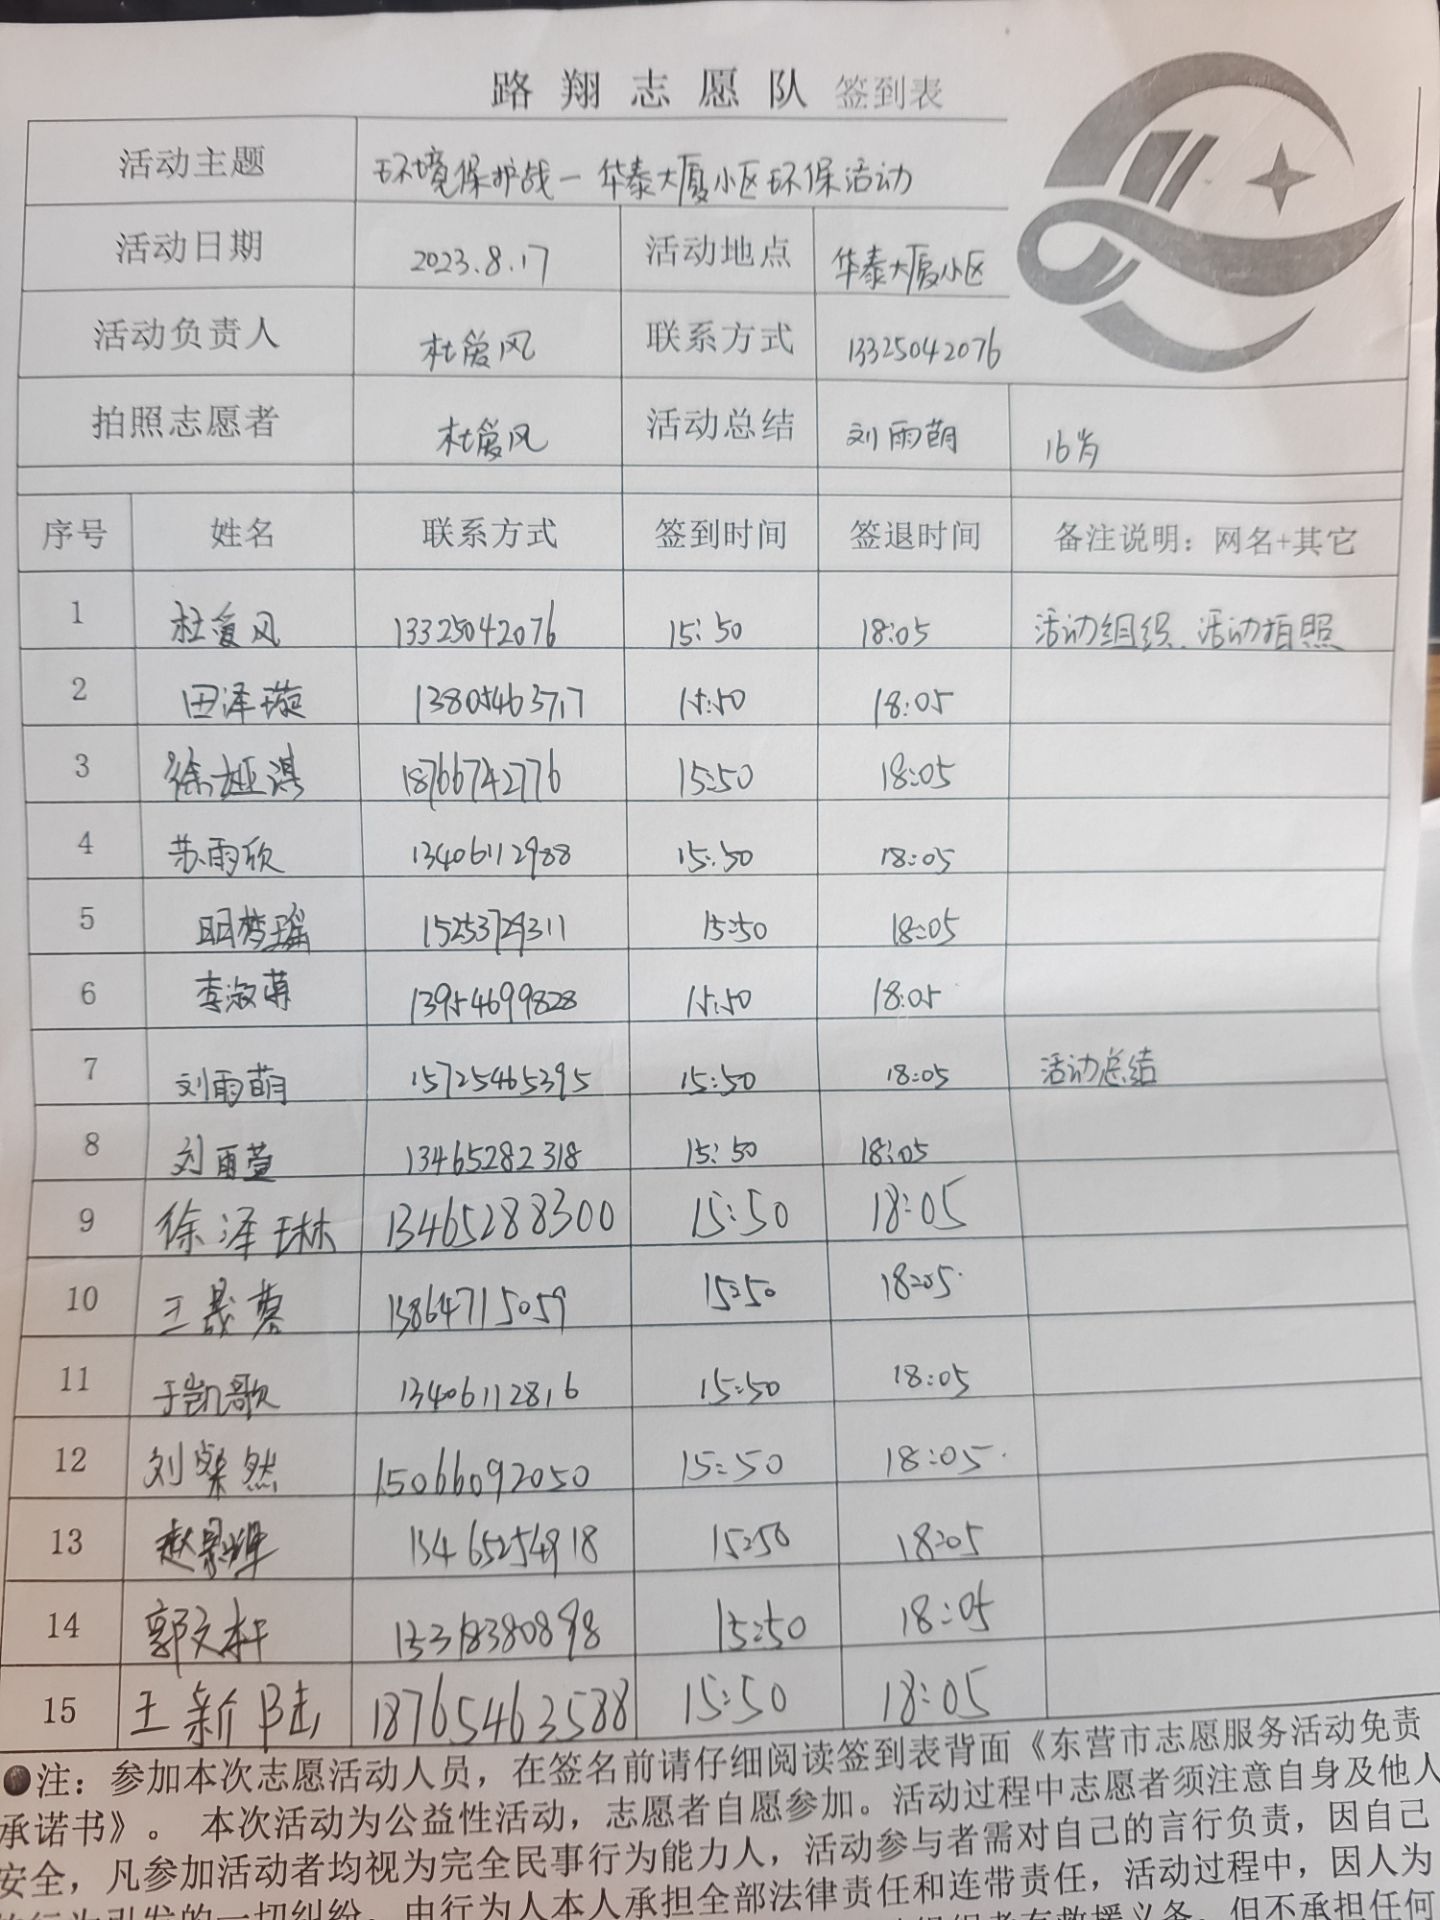 路翔志愿队 签到表
活动主题 环境保护战一华泰大厦小区环保活动
活动日期 2023.8.17 活动地点 华泰大厦小区
活动负责人 杜爱风 联系方式 13325042076
拍照志愿者 杜爱风 活动总结 刘雨萌 16岁
序号 姓名 联系方式 签到时间 签退时间 备注说明：网名+其它
1 杜爱风 13325042076 15:50 18:05 活动组织、活动拍照
2 田泽璇 13805463717 15:50 18:05
3 徐娅淇 18766742776 15:50 18:05
4 苏雨欣 13406112988 15:50 18:05
5 明梦瑶 15253729311 15:50 18:05
6 李淑萌 13954699828 15:50 18:05
7 刘雨萌 15725465395 15:50 18:05 活动总结
8 刘雨萱 13465282318 15:50 18:05
9 徐泽琳 13465288300 15:50 18:05
10 王晟 13864715059 15:50 18:05
11 于凯歌 13406112816 15:50 18:05
12 刘粲然 15066092050 15:50 18:05
13 赵景烨 13465254918 15:50 18:05
14 郭文杆 15318380898 15:50 18:05
15 王新陆 18765463588 15:50 18:05
注：参加本次志愿活动人员，在签名前请仔细阅读签到表背面《东营市志愿服务活动免责
承诺书》。 本次活动为公益性活动，志愿者自愿参加。活动过程中志愿者须注意自身及他人
安全，凡参加活动者均视为完全民事行为能力人，活动参与者需对自己的言行负责，因自己
的行为引发的一切纠纷，由行为人本人承担全部法律责任和连带责任，活动过程中，因人为
有救援义务，但不承担任何